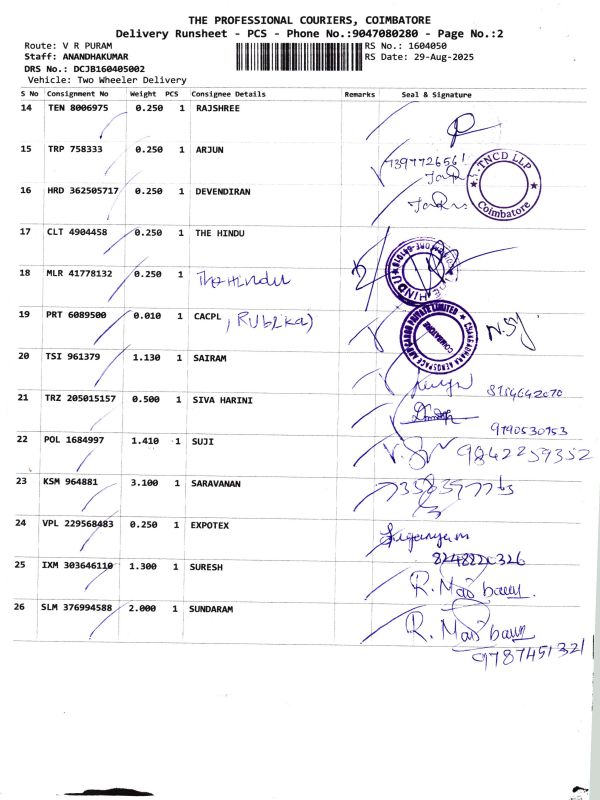 THE PROFESSIONAL COURIERS, COIMBATORE
Delivery Runsheet - PCS - Phone No.:9047080280 - Page No.:2
Route: V R PURAM RS No.: 1604050
Staff: ANANDHAKUMAR RS Date: 29-Aug-2025
DRS No.: DCJB160405002
Vehicle: Two Wheeler Delivery
S No Consignment No Weight PCS Consignee Details Remarks Seal & Signature
14 TEN 8006975 0.250 1 RAJSHREE
15 TRP 758333 0.250 1 ARJUN
7397726561
TNCD LLP
Coimbatore
16 HRD 362505717 0.250 1 DEVENDIRAN
17 CLT 4904458 0.250 1 THE HINDU
18 MLR 41778132 0.250 1 The HINDU
THE HINDU
19 PRT 6089500 0.010 1 CACPL, RUBIKA)
COIMBATORE
20 TSI 961379 1.130 1 SAIRAM
21 TRZ 205015157 0.500 1 SIVA HARINI
9790530753
22 POL 1684997 1.410 1 SUJI
9842259352
23 KSM 964881 3.100 1 SARAVANAN
24 VPL 229568483 0.250 1 EXPOTEX
25 IXM 303646110 1.300 1 SURESH
R.
26 SLM 376994588 2.000 1 SUNDARAM
R.
9787451321